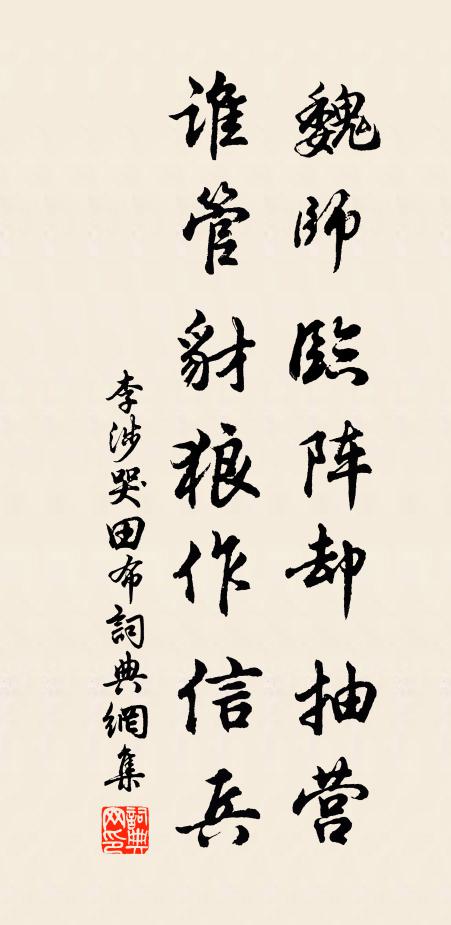 魏師臨阵却抽营
谁管豺狼作信兵
李涉哭田布詞典網集
詞典网印